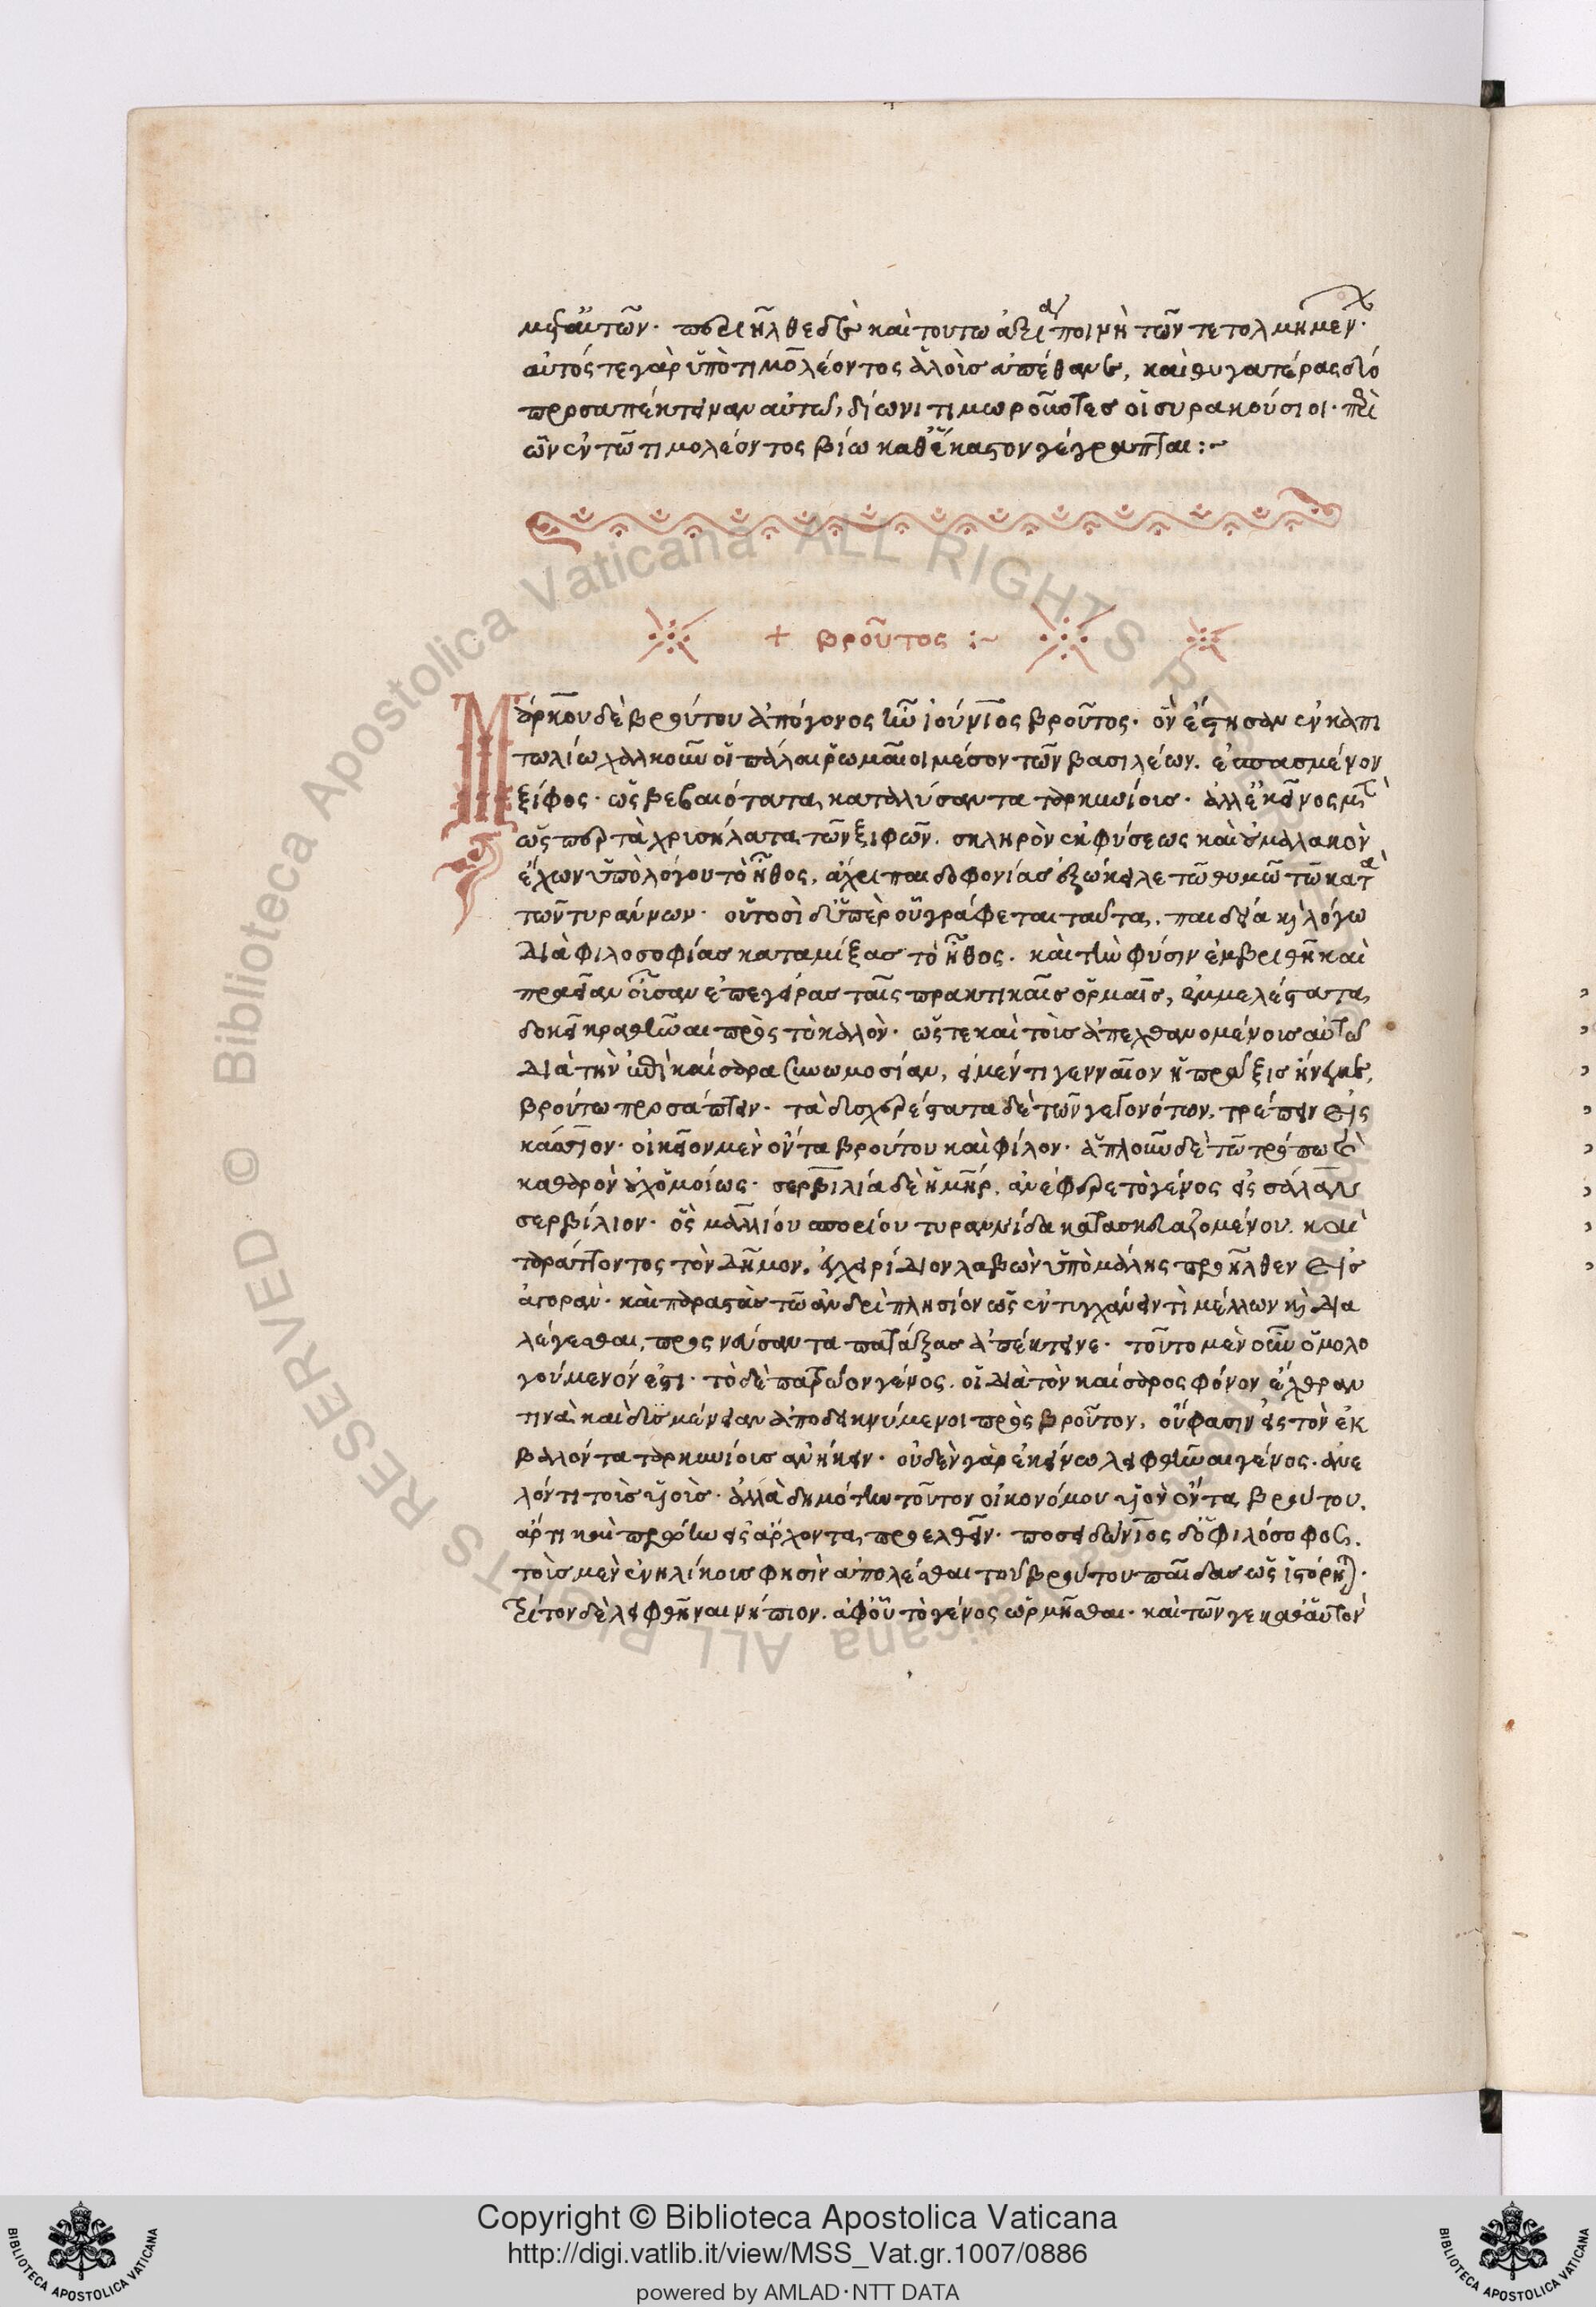 μεθ' αὑτῶν. περιῆλθε δ' οὖν καὶ τούτω ἀξία ποινὴ τῶν τετολμημένων.
αὐτός τε γὰρ ὑπὸ τιμολέοντος ἁλοὺς ἀπέθανε, καὶ θυγατέρας δύο
προσαπέκτειναν αὐτοῦ, δίωνι τιμωροῦντες οἱ συρακούσιοι. περὶ
ὧν ἐν τῶ τιμολέοντος βίω καθ' ἕκαστον γέγραπται :~
+ βροῦτος :~
Μάρκου δὲ βρούτου ἀπόγονος ἦν ἰούνιος βροῦτος. ὃν ἔστησαν ἐν καπι
τωλίω χαλκοῦν οἱ πάλαι ῥωμαῖοι μέσον τῶν βασιλέων. ἐσπασμένον
ξίφος. ὡς βεβαιότατα καταλύσαντα ταρκυνίους. ἀλλ' ἐκεῖνος μὲν
ὥσπερ τὰ ψυχρήλατα τῶν ξιφῶν. σκληρὸν ἐκ φύσεως καὶ οὐ μαλακὸν
ἔχων ὑπὸ λόγου τὸ ἦθος, ἄχρι παιδοφονίας ἐξώκειλε τῶ θυμῶ τῶ κατὰ
τῶν τυράννων. οὑτοσὶ δ' ὑπὲρ οὗ γράφεται ταῦτα, παιδεία καὶ λόγω
διὰ φιλοσοφίας καταμίξας τὸ ἦθος. καὶ τὴν φύσιν ἐμβριθῆ καὶ
πραεῖαν οὖσαν ἐπεγείρας ταῖς πρακτικαῖς ὁρμαῖς, ἐμμελέστατα
δοκεῖ κραθῆναι πρὸς τὸ καλόν. ὥστε καὶ τοὺς ἀπεχθανομένους αὐτῶ
διὰ τὴν ἐπὶ καίσαρα συνωμοσίαν, εἰ μέν τι γενναῖον ἡ πρᾶξις ἤνεγκε,
βρούτω προσάπτειν. τὰ δυσχερέστατα δὲ τῶν γεγονότων, τρέπειν εἰς
κάσσιον. οἰκεῖον μὲν ὄντα βρούτου καὶ φίλον. ἁπλοῦν δὲ τῶ τρόπω καὶ
καθαρὸν οὐχ ὁμοίως. σερβιλία δὲ ἡ μήτηρ, ἀνέφερε τὸ γένος εἰς σάλαν
σερβίλιον. ὃς μαλλίου σπορίου τυραννίδα κατασκευαζομένου. καὶ
ταράττοντος τὸν δῆμον. ἐγχειρίδιον λαβὼν ὑπὸ μάλης προῆλθεν εἰς
ἀγοράν. καὶ παραστὰς τῶ ἀνδρὶ πλησίον ὡς ἐντυγχάνειν τὶ μέλλων καὶ δια
λέγεσθαι, προσνεύσαντα πατάξας ἀπέκτεινε. τοῦτο μὲν οὖν ὁμολο
γούμενόν ἐστι. τὸ δὲ πατρῶον γένος. οἱ διὰ τὸν καίσαρος φόνον ἔχθραν
τινὰ καὶ δυσμένειαν ἀποδεικνύμενοι πρὸς βροῦτον, οὔ φασιν εἰς τὸν ἐκ
βαλόντα ταρκυνίους ἀνήκειν. οὐδὲν γὰρ ἐκείνω λειφθῆναι γένος. ἀνε
λόντι τοὺς υἱούς. ἀλλὰ δημότην τοῦτον οἰκονόμου υἱὸν ὄντα βρούτου.
ἄρτι καὶ πρώην εἰς ἄρχοντα προελθεῖν. ποσειδώνιος δ' ὁ φιλόσοφος.
τοὺς μὲν ἐνηλίκους φησὶν ἀπολέσθαι τοῦ βρούτου παῖδας ὡς ἱστόρηται.
τρίτον δὲ λειφθῆναι νήπιον. ἀφ' οὗ τὸ γένος ὡρμῆσθαι. καὶ τῶν γε καθ' αὑτὸν
Biblioteca Apostolica Vaticana ALL RIGHTS RESERVED ©
Copyright © Biblioteca Apostolica Vaticana
http://digi.vatlib.it/view/MSS_Vat.gr.1007/0886
powered by AMLAD·NTT DATA
BIBLIOTECA APOSTOLICA VATICANA
BIBLIOTECA APOSTOLICA VATICANA